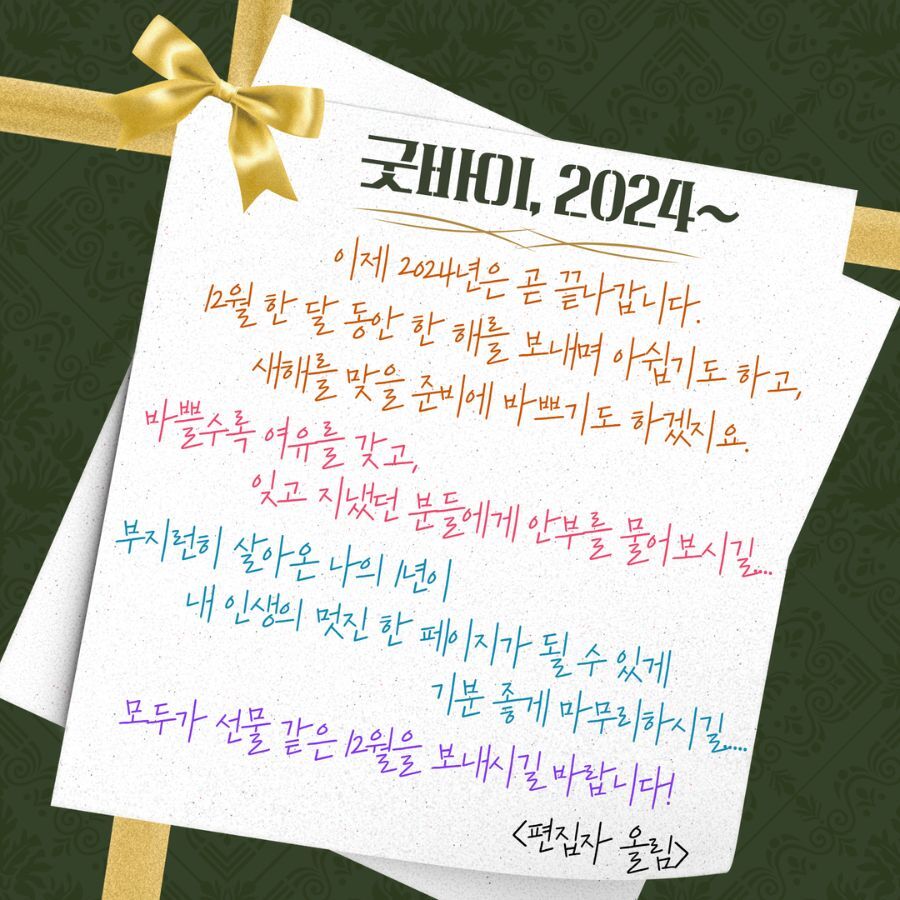 굿바이, 2024~
이제 2024년은 곧 끝나갑니다.
12월 한 달 동안 한 해를 보내며 아쉽기도 하고,
새해를 맞을 준비에 바쁘기도 하겠지요.
바쁠수록 여유를 갖고,
잊고 지냈던 분들에게 안부를 물어보시길....
부지런히 살아온 나의 1년이
내 인생의 멋진 한 페이지가 될 수 있게
기분 좋게 마무리하시길.....
모두가 선물 같은 12월을 보내시길 바랍니다!
<편집자 올림>